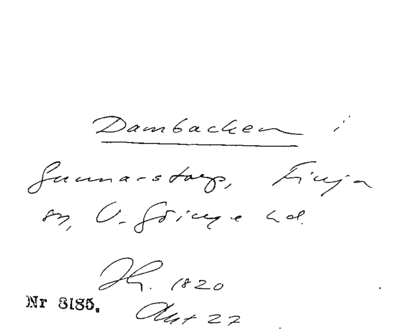 Dambacken i
Gunnarstorp, Finja
sn, V. Göinge hd.
Jh. 1820
Nr 8185. Akt 27